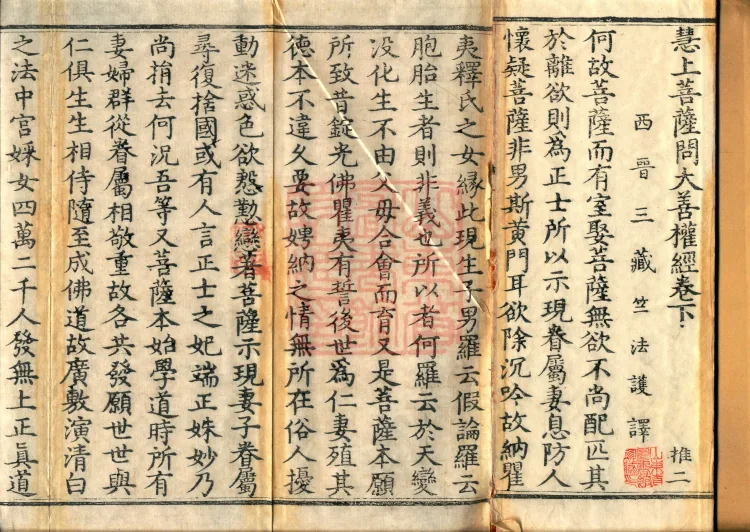 慧上菩薩問大善權經卷下
推二
西晉三藏竺法護譯
何故菩薩而有室娶菩薩無欲不尚配匹其
於離欲則為正士所以示現眷屬妻息防人
懷疑菩薩非男斯黃門耳欲除沉吟故納瞿
夷釋氏之女緣此現生子男羅云假論羅云
胞胎生者則非義也所以者何羅云於天變
沒化生不由父母合會而育又是菩薩本願
所致昔錠光佛瞿夷有誓後世為仁妻殖其
德本不違久要故娉納之情無所在俗人擾
動迷惑色欲懃戀著菩薩示現妻子眷屬
尋復捨國或有人言正士之妃端正姝妙乃
尚捐去何況吾等又菩薩本始學道時所有
妻婦群從眷屬相敬重故各共發願世世與
仁俱生生相侍隨至成佛道故廣敷演清白
之法中宮婇女四萬二千人發無上正真道